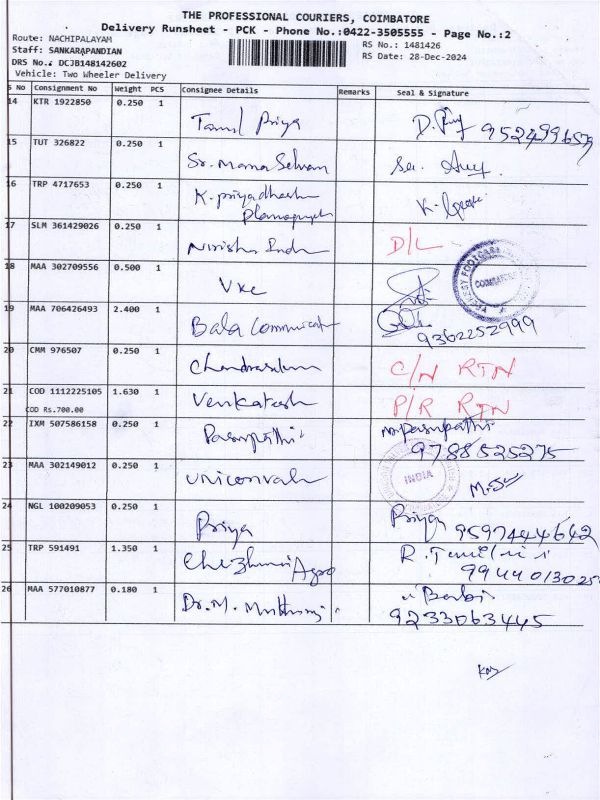 THE PROFESSIONAL COURIERS, COIMBATORE
Delivery Runsheet - PCK - Phone No.:0422-3505555 - Page No.:2
Route: NACHIPALAYAM
RS No.: 1481426
Staff: SANKARAPANDIAN
RS Date: 28-Dec-2024
DRS No.: DCJB148142602
Vehicle: Two Wheeler Delivery
S No Consignment No Weight PCS Consignee Details Remarks Seal & Signature
14 KTR 1922850 0.250 1
Tamil Priya D. 9524996579
15 TUT 326822 0.250 1
Sr. Mana Selvam
16 TRP 4717653 0.250 1
K. priyadharsh K.
17 SLM 361429026 0.250 1
D/L
18 MAA 302709556 0.500 1
VKC COIMBATORE
19 MAA 706426493 2.400 1
Bala Communicat 9362252999
20 CMM 976507 0.250 1
Chandrasekran C/N RTN
21 COD 1112225105 1.630 1
COD Rs.700.00
Venkatesh P/R RTN
22 IXM 507586158 0.250 1
Pasupathi m.pasupathi
9788525275
INDIA
23 MAA 302149012 0.250 1
Uniconvals
24 NGL 100209053 0.250 1
Priya Priya 9597444642
25 TRP 591491 1.350 1
Agro R.
26 MAA 577010877 0.180 1
Dr. M.
9233063445